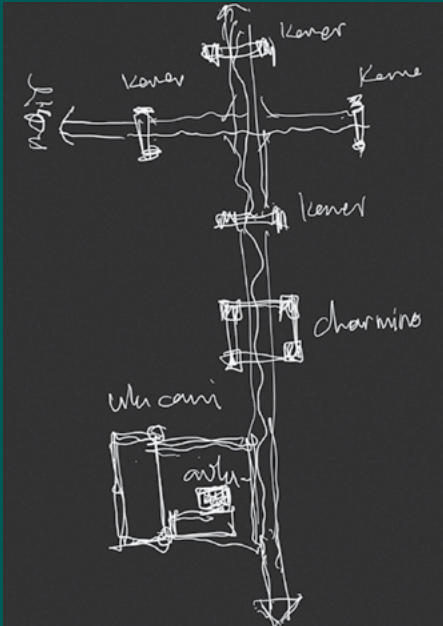 kemer
kemer
Keme
kemer
charmino
ulu cami
avlu